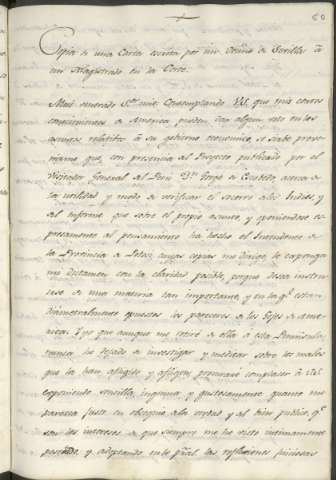 Copia de una Carta escrita por un vecino de Sevilla á
un Magistrado en la Corte.
Muy venerado Sor. mio: Contemplando V.S. que mis cortos
conocimientos de America pueden dar algun en los
asuntos relativos á su gobierno economico, se sirbe preve-
nirme que, con presencia del Proyecto publicado por el
Visitador General del Perú Dn. Jorge de Escobedo, acerca de
la utilidad y modo de verificar el socorro á los Indios, y
del informe que sobre el propio asunto, y oponiendose ex-
presamente al pensamiento ha hecho el Intendente de
la Provincia de Potosi, cuyas copias me dirige, le exponga
mi dictamen con la claridad posible, porque desea instru-
irse de una materia tan importante, y en la qe. estan
diametralmente opuestos los pareceres de los Gefes de Ame-
rica. Yo qe. aunque me retiré de ella á esta Peninsula,
nunca he dejado de investigar y meditar sobre los males
que la han afligido y afligen, procuraré complacer á V.S.
exponiendo sencilla, ingenua y gustosamente quanto me
parezca justo en obsequio á la virtud y al bien publico, qe.
son los intereses de que siempre me he visto intimamente
poseido, y adoptando en lo pral. las reflexiones juiciosas